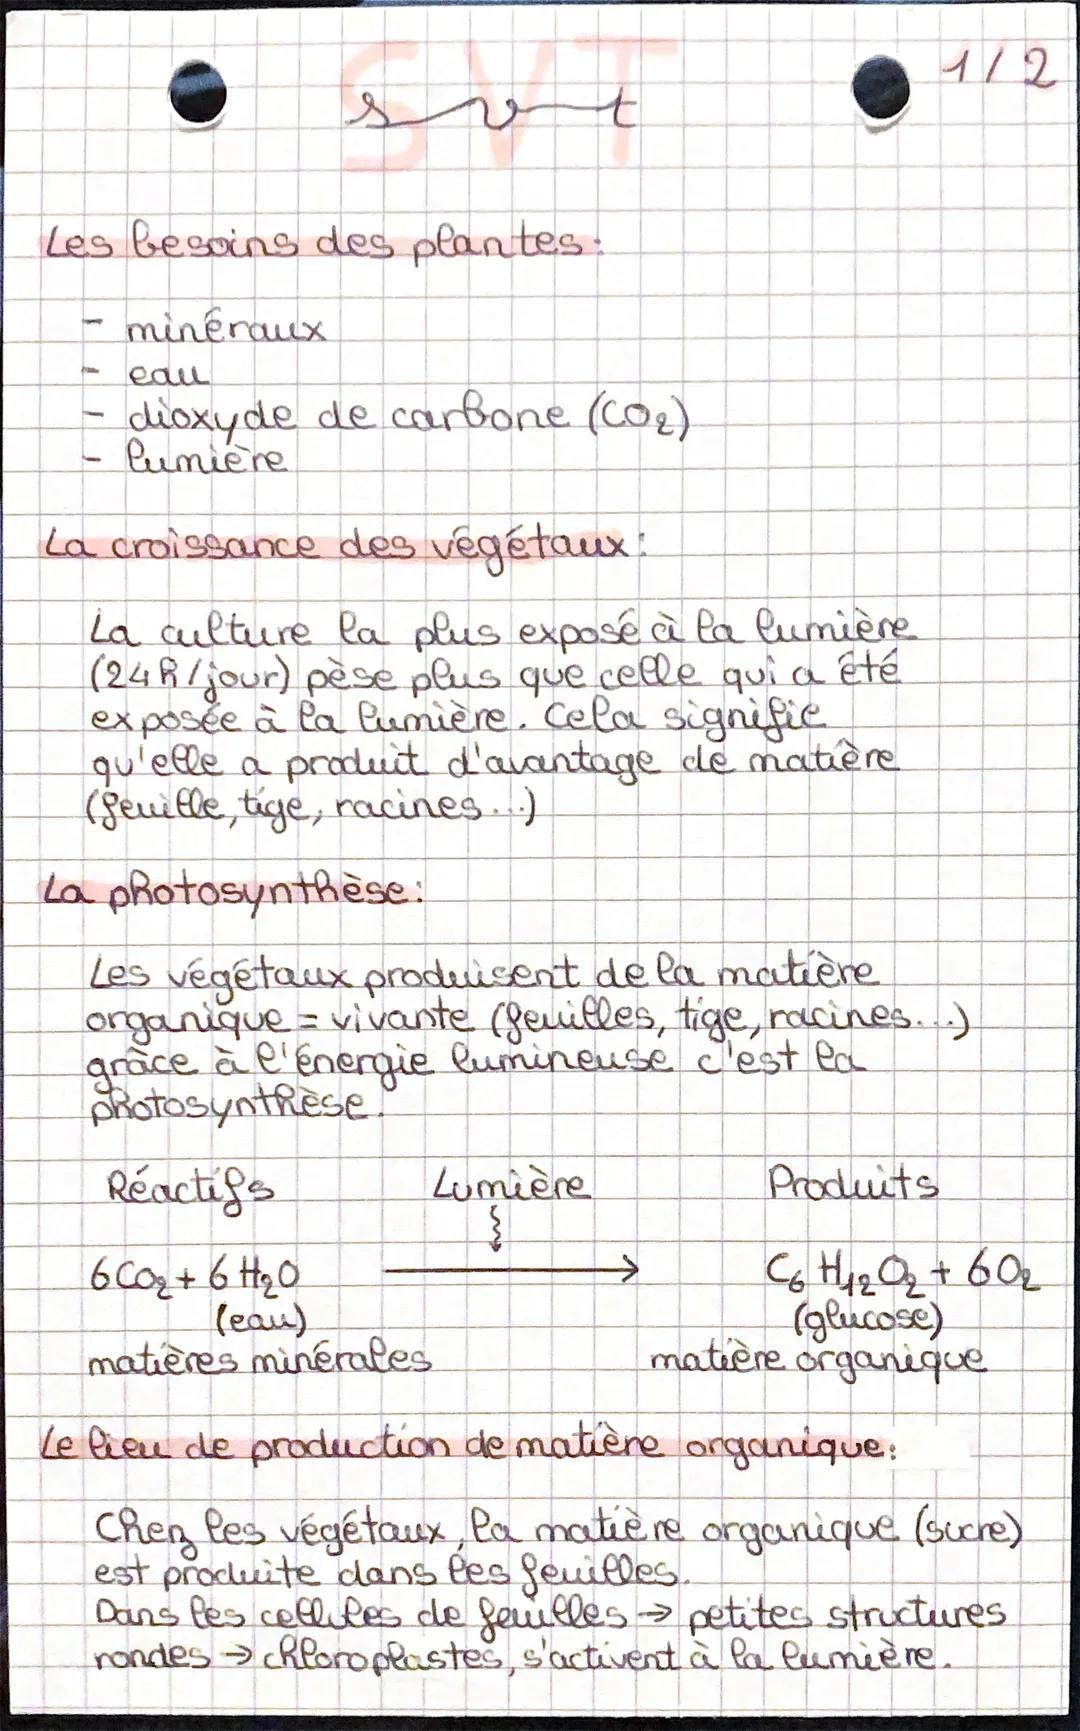 1/2
SVT
svt
Les besoins des plantes :
- minéraux
- eau
- dioxyde de carbone (CO₂)
- lumière
La croissance des végétaux :
La culture la plus exposé à la lumière
(24h/jour) pèse plus que celle qui a été
exposée à la lumière. Cela signifie
qu'elle a produit d'avantage de matière
(feuille, tige, racines...)
La photosynthèse :
Les végétaux produisent de la matière
organique = vivante (feuilles, tige, racines...)
grâce à l'énergie lumineuse c'est la
photosynthèse.
Réactifs Lumière Produits
6CO₂ + 6H₂O → C₆H₁₂O₂ + 6O₂
(eau) (glucose)
matières minérales matière organique
Le lieu de production de matière organique :
Chez les végétaux, la matière organique (sucre)
est produite dans les feuilles.
Dans les cellules de feuilles → petites structures
rondes → chloroplastes, s'activent à la lumière.